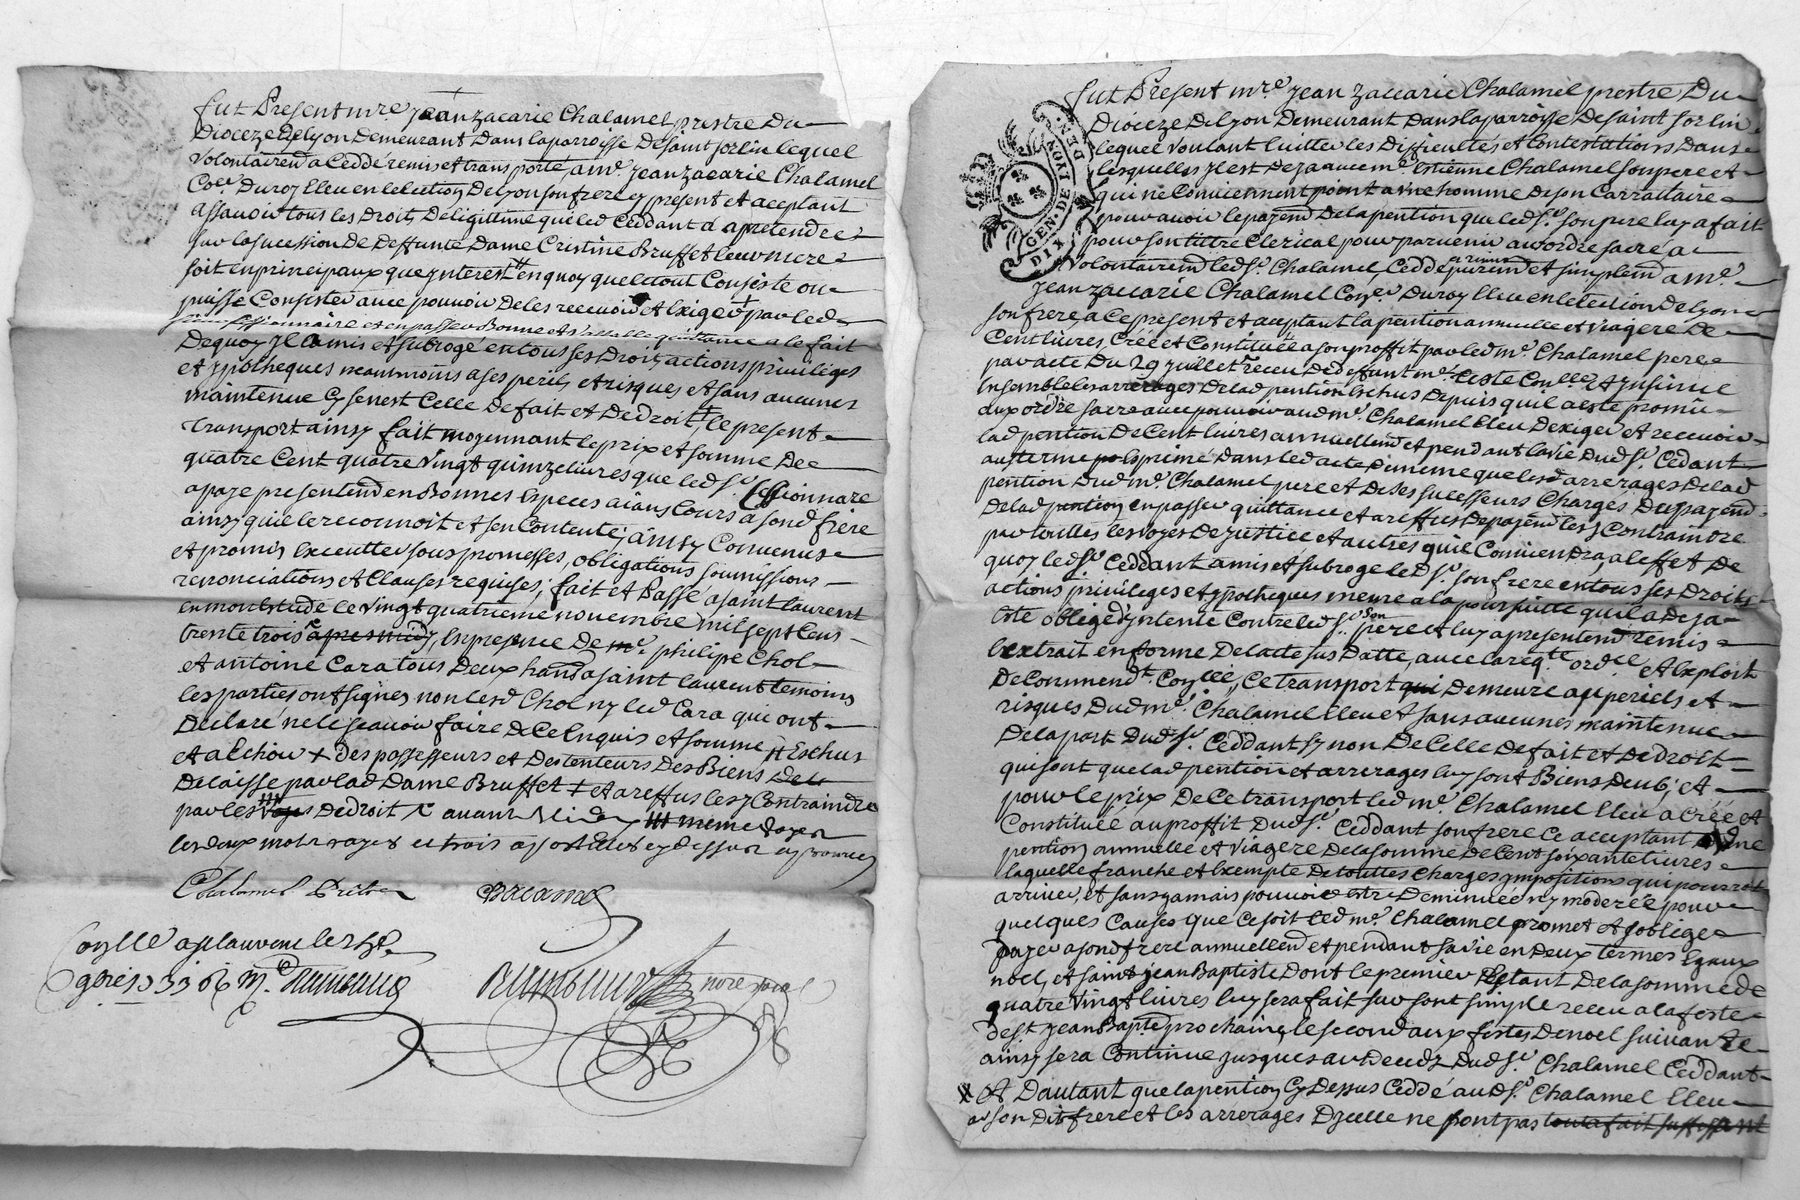 fut Present mre jean zacarie Chalamel prestre Du
Dioceze Delyon Demeurant Dans la parroisse De saint sorlin lequel
volontairemd a Ceddé remis et transporté a mr. jean zacarie Chalamel
Coer Du roy Eleu en lelection De lyon son frere cy present et aceptant
assavoir tous les Droits De ligittime que led Ceddant a apretendre
sur la sucession De Deffunte Dame Cristine Bruffet leur mere
soit en principaux que ynterest en quoy que le tout Consiste ou
puisse Consister avec pouvoir De les recevoir et Exiger + par led
Cessionnaire et en passer Bonne et vallable quittance a le fait
De quoy Jl la mis et subrogé en tous ses Droits actions priviléges
et ypotheques neantmoins a ses perils et risques et sans aucunes
maintenue sy se nest Celle De fait et De Droit, le present
transport ainsy fait moyennant le prix et somme De
quatre Cent quatre vingt quinze livres que led sr. Cessionnare
a paye presentemd en Bonnes Especes aians Cours a sond frère
ainsy quil le reconnoit et sen Contente; ainsy Convenus
et promis Executter sous promesses, obligations soumissions
renonciations et Clauses requises; fait et Passé a saint laurent
en mon Estude le vingt quatrieme novembre mil sept Cens
trente trois apres midy, En presence De mr philipe Chol
et antoine Cara tous Deux habd a saint laurent temoins
les parties ont signés non led Chol ny led Cara qui ont
Declaré ne le sçavoir faire De ce Enquis et sommé # Eschus
et a Echoir + des possesseurs et Destenteurs Des Biens De
Delaissé par lad Dame Bruffet + et a reffus les y Contraindre
par les voyes De droit avant Midy meme voyes
les deux mots rayes et trois apostilles cy dessus approuvées
Chalamel Prêtre
Chalamel
Coylle a st laurent le
mre Raimond
Raimond nore royal
fut Present mre. jean zaccarie Chalamel prestre Du
Dioceze De lyon Demeurant Dans la parroisse De saint sorlin
lequel voulant Eviter les Difficultés et Contestations Dans
lesquelles Jl est Deja avec mr Estienne Chalamel son pere et
qui ne Conviennent point a une homme De son Carractaire
pour avoir le payemd De la pention que led sr. son pere luy a fait
pour son tiltre Clerical pour parvenir aux ordre sacré a
volontairemd led sr. Chalamel Ceddé puremd et simplemd a mr.
jean zaccarie Chalamel Coner Du roy Eleu en lelection De lyon
son frere, a Ce present et aceptant la pention annuelle et viagere De
Cent livres, Créé et Constituée a son proffit par led mr. Chalamel pere
par acte Du 29 juillet recu De Deffunt mr. Coylle et ynsinué
Ensemble les arrerages De lad pention Echus Depuis quil a esté promu
aux ordre sacré avec pouvoir aud mr. Chalamel Eleu Dexiger et recevoir
lad pention De Cent livres annuellemd et pend ant la vie Dud sr. Cedant
au terme Exprimé Dans led acte De meme que lesd arrerages De lad
pention Dud mr. Chalamel pere et De ses sucesseurs Chargés Du payemd
De lad pention en passer quittance et a reffus De payemd les y Contraindre
par touttes les voyes De justice et autres quil Conviendra, a leffet De
quoy led sr Ceddant a mis et subrogé led sr. son frere en tous ses Droits
actions priviléges et ypotheques meme a la poursuitte quil a Deja
Esté obligé Dyntenté Contre led sr. son pere et luy a presentemd remis
lextrait en forme De lacte sus Datté, avec la reqte ordce et Exploit
De Commendt. Coylle, Ce transport qui Demeure au periels et
risques Dud mr. Chalamel Eleu et sans aucunes maintenue
De la part Dud sr. Ceddant sy non De Celle De fait et De Droit
qui sont que lad pention et arrerages luy sont Biens Deub; et
pour le prix De Ce transport led mr. Chalamel Eleu a Créé et
Constituée au proffit Dud sr. Ceddant son frere Ce acceptant une
pention annuelle et viagere De la somme De Cent soixante livres
laquelle franche et Exempte De touttes Charges ympositions qui pourrot
arriver, et sans jamais pouvoir estre Diminuée ny moderée pour
quelques Causes que Ce soit led mr. Chalamel promet et soblige
payer a sond frere annuellemd et pendant sa vie en Deux termes Egaux
noel, et saint jean Baptiste Dont le premier Estant De la somme de
quatre vingt livres luy sera fait sur sont simple receu a la feste
de st. jean Bapte prochaine, le second aux festes De noel suivante
ainsy sera Continué jusques au Decedz Dud sr. Chalamel Ceddant
# et Dautant que la pention Cy Dessus Ceddé aud sr. Chalamel Eleu
a son Dit frere et les arrerages Dycelle ne sont pas tout a fait suffisant
GEN. DE LION
DIX DEN.